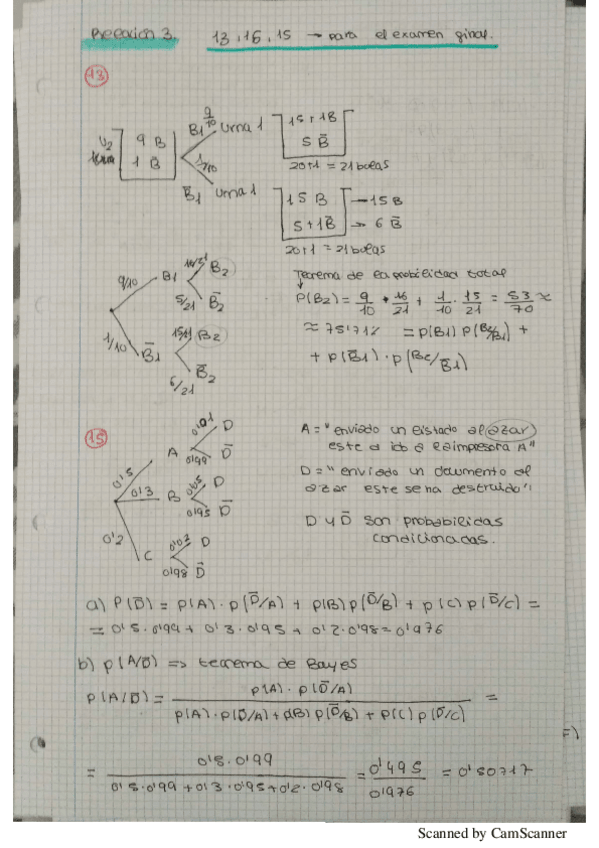 Relación 3. 13, 16, 15 → para el examen final.
13
U2
9 B
1 B̄
9/10
B1 urna 1
15+1B
5 B̄
20+1 = 21 bolas
1/10
B̄1 urna 1
15 B → 15 B
5+1B̄ → 6 B̄
20+1 = 21 bolas
9/10 B1 16/21 B2
5/21 B̄2
1/10 B̄1 15/21 B2
6/21 B̄2
Teorema de la probilidad total
P(B2) = 9/10 · 16/21 + 1/10 · 15/21 = 53/70 ≈
≈ 75'712 = p(B1) p(B2/B1) +
+ p(B̄1) · p(B2/B̄1)
15
0'5 A 0'01 D
0'99 D̄
0'3 B 0'05 D
0'95 D̄
0'2 C 0'02 D
0'98 D̄
A = "enviado un listado al azar
este a ido a la impresora A"
D = "enviado un documento al
azar este se ha destruido"
D y D̄ son probabilidas
condicionadas.
a) P(D̄) = p(A) · p(D̄/A) + p(B) p(D̄/B) + p(C) p(D̄/C) =
= 0'5 · 0'99 + 0'3 · 0'95 + 0'2 · 0'98 = 0'976
b) p(A/D̄) => teorema de Bayes
p(A/D̄) = p(A) · p(D̄/A) / p(A) · p(D̄/A) + p(B) p(D̄/B) + p(C) p(D̄/C) =
= 0'5 · 0'99 / 0'5 · 0'99 + 0'3 · 0'95 + 0'2 · 0'98 = 0'495 / 0'976 = 0'50717
Scanned by CamScanner